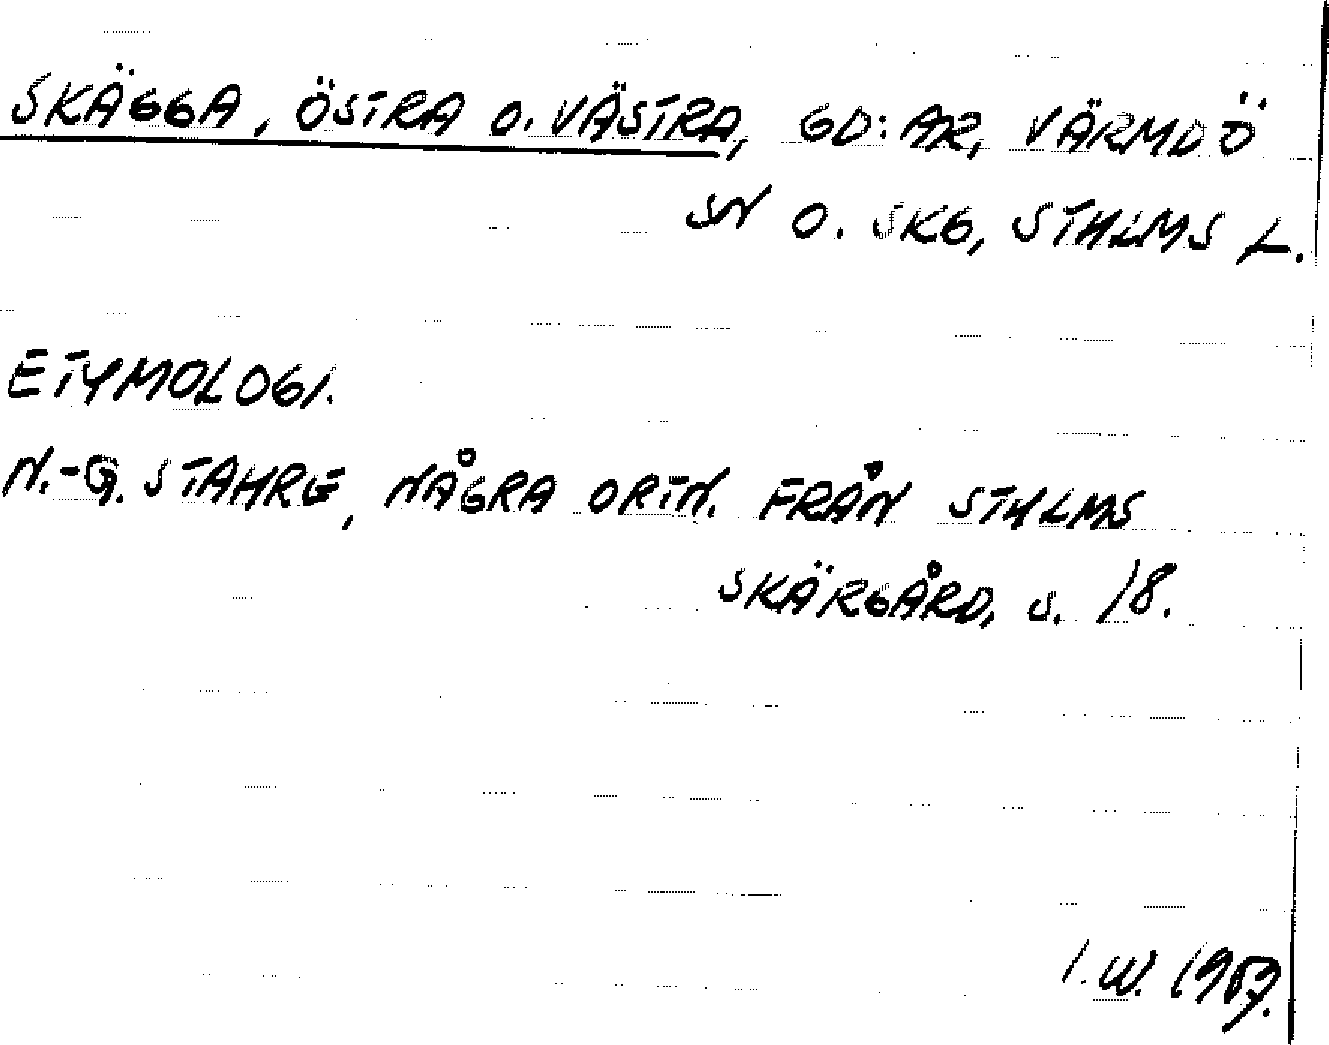 SKÄGGA, ÖSTRA O. VÄSTRA, GD:AR, VÄRMDÖ
SN O. SKG, STHLMS L.
ETYMOLOGI.
N.-G. STAHRE, NÅGRA ORTN. FRÅN STHLMS
SKÄRGÅRD, S. 18.
I.W.